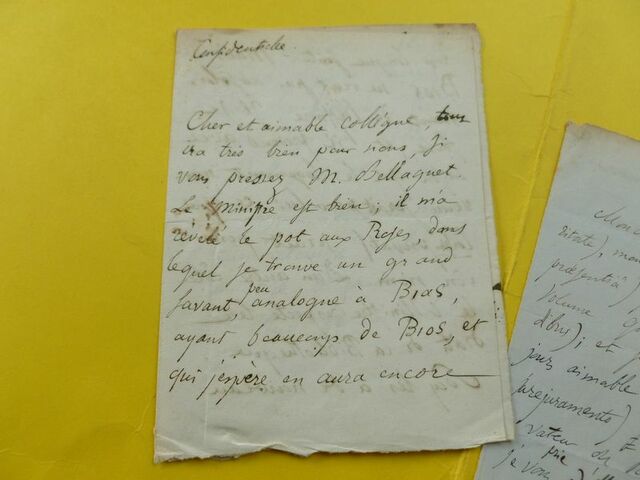 Confidentielle.
Cher et aimable collègue, tout
ira très bien pour nous, si
vous pressez M. Bellaguet.
Le Ministre est bien; il m'a
révélé le pot aux Roses, dans
lequel je trouve un grand
savant, peu analogue à Bias,
ayant beaucoup de Bios, et
qui j'espère en aura encore
Mon c
, mon
présenta
Volume
; et j
jours aimable
parejuramento)
vateur du
prie
je vous